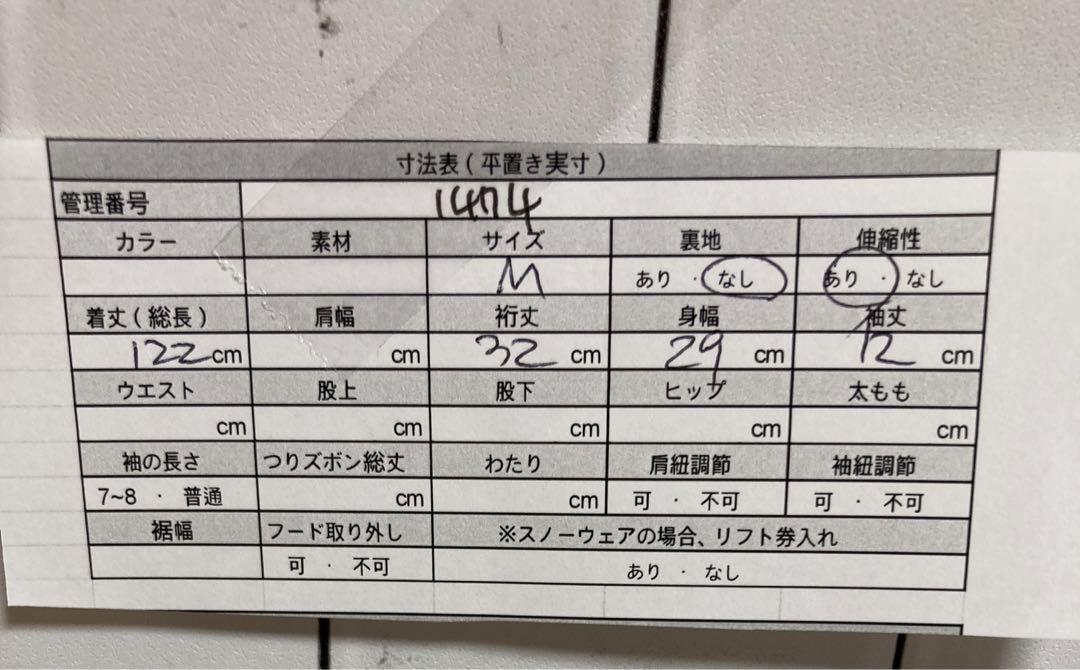 寸法表(平置き実寸)
管理番号 1474
カラー 素材 サイズ 裏地 伸縮性
M あり・なし あり・なし
着丈(総長) 肩幅 裄丈 身幅 袖丈
122cm cm 32cm 29cm 12cm
ウエスト 股上 股下 ヒップ 太もも
cm cm cm cm cm
袖の長さ つりズボン総丈 わたり 肩紐調節 袖紐調節
7~8・普通 cm cm 可・不可 可・不可
裾幅 フード取り外し ※スノーウェアの場合、リフト券入れ
可・不可 あり・なし